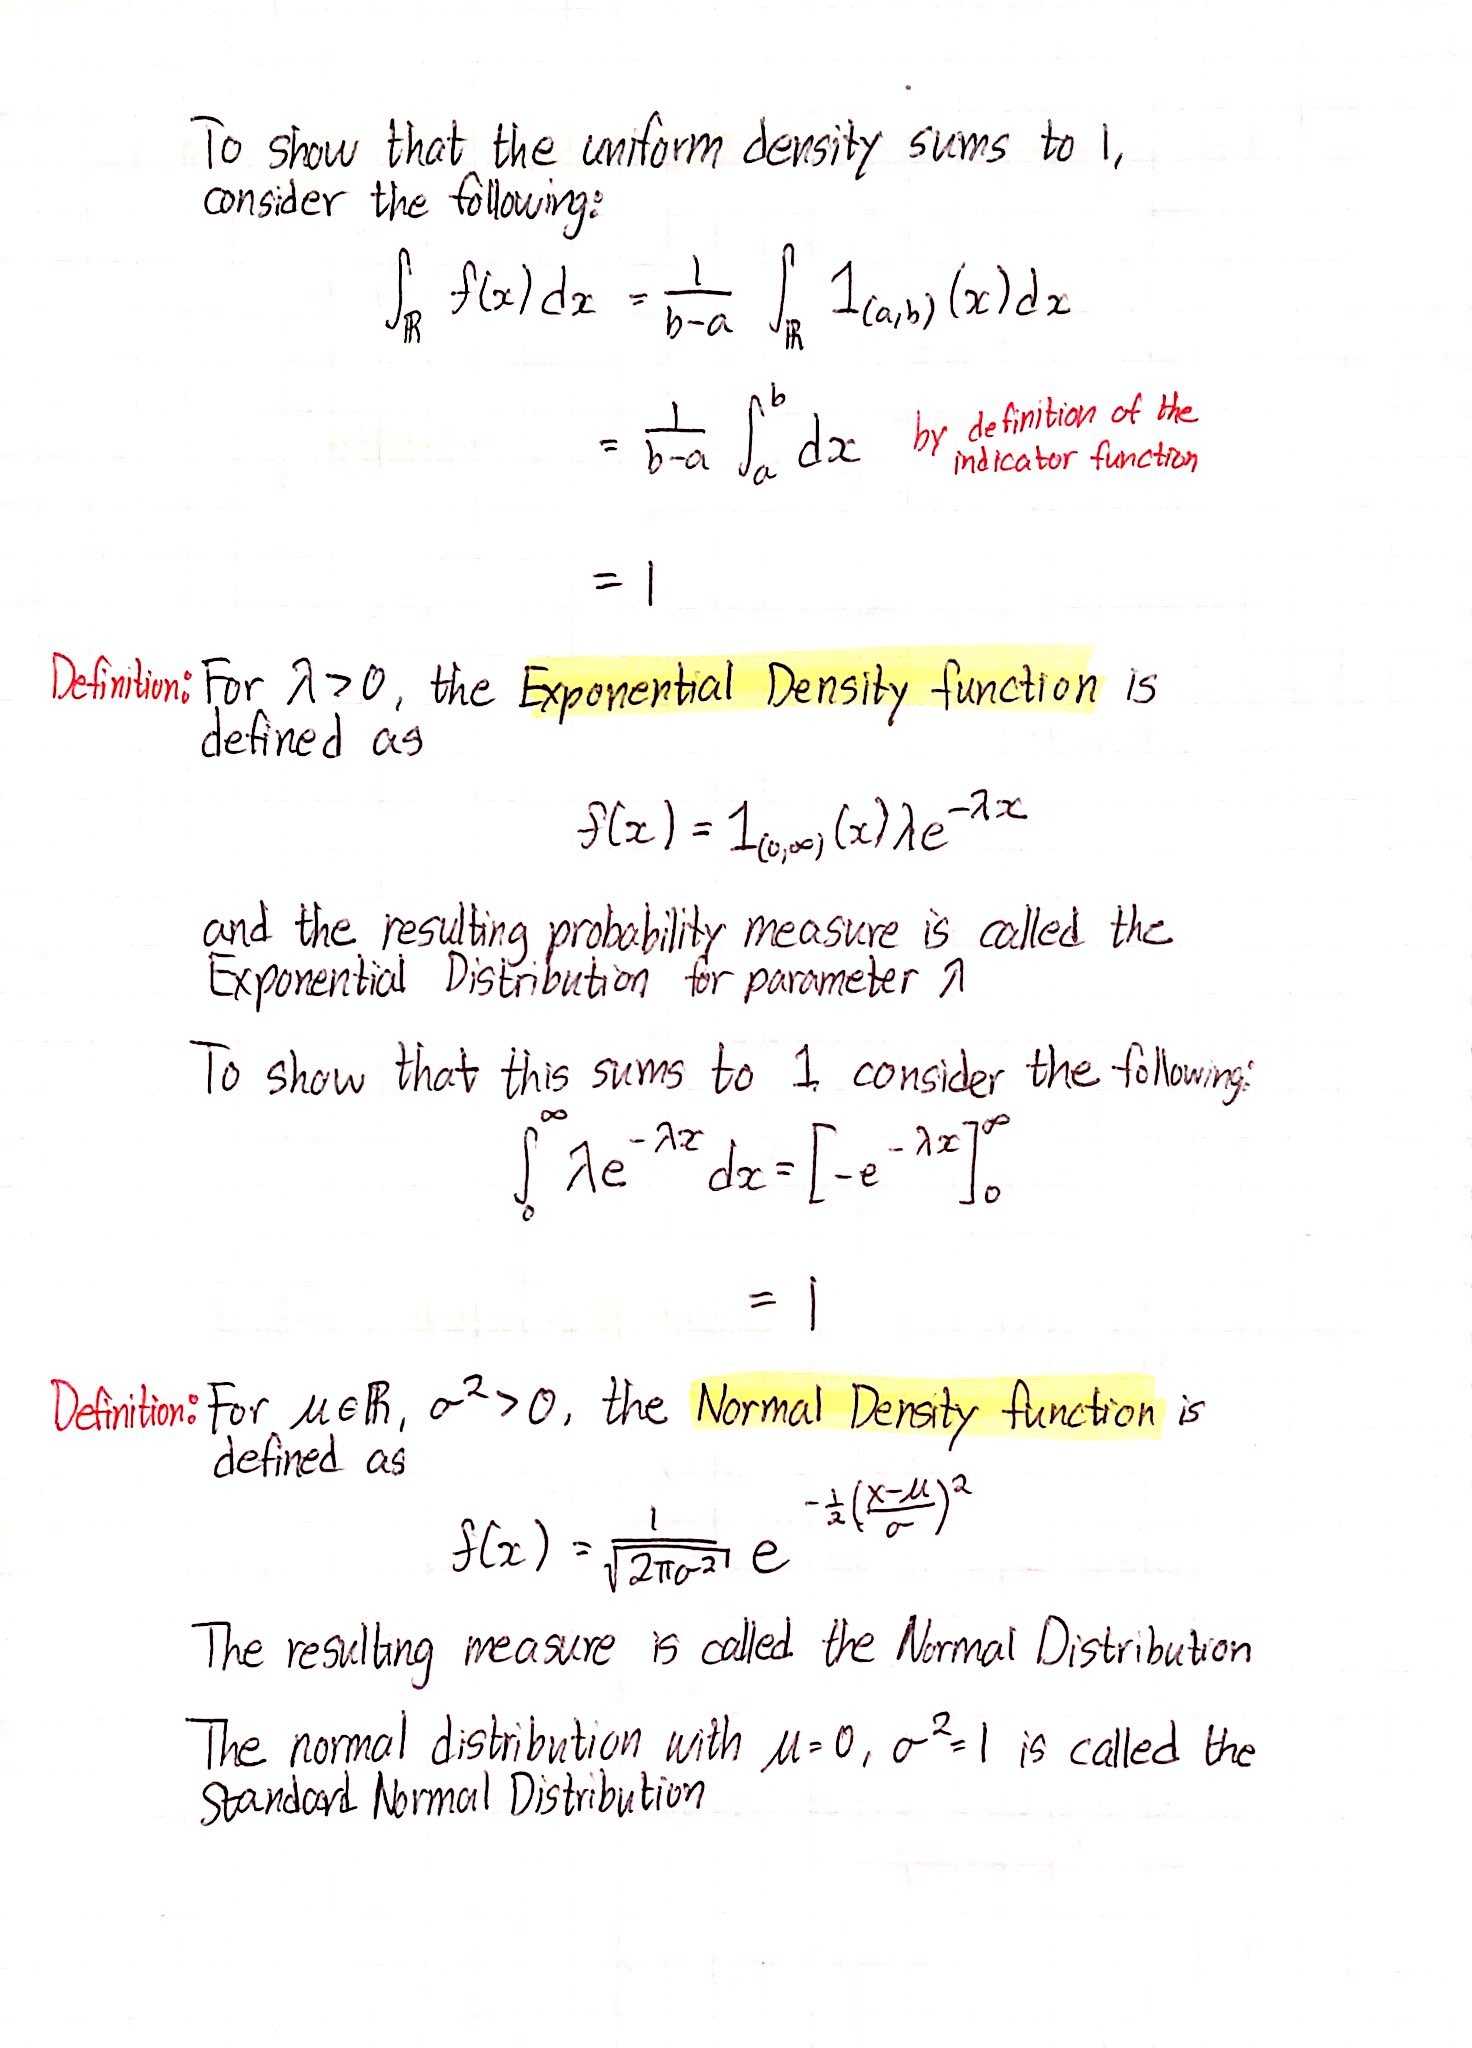 To show that the uniform density sums to 1,
consider the following:
∫_ℝ f(x) dx = 1/(b-a) ∫_ℝ 1_(a,b) (x) dx
= 1/(b-a) ∫_a^b dx by definition of the
indicator function
= 1
Definition: For λ>0, the Exponential Density function is
defined as
f(x) = 1_(0,∞) (x) λe^(-λx)
and the resulting probability measure is called the
Exponential Distribution for parameter λ
To show that this sums to 1, consider the following:
∫_0^∞ λe^(-λx) dx = [-e^(-λx)]_0^∞
= 1
Definition: For μ∈ℝ, σ²>0, the Normal Density function is
defined as
f(x) = 1/√(2πσ²) e^(-½((x-μ)/σ)²)
The resulting measure is called the Normal Distribution
The normal distribution with μ=0, σ²=1 is called the
Standard Normal Distribution